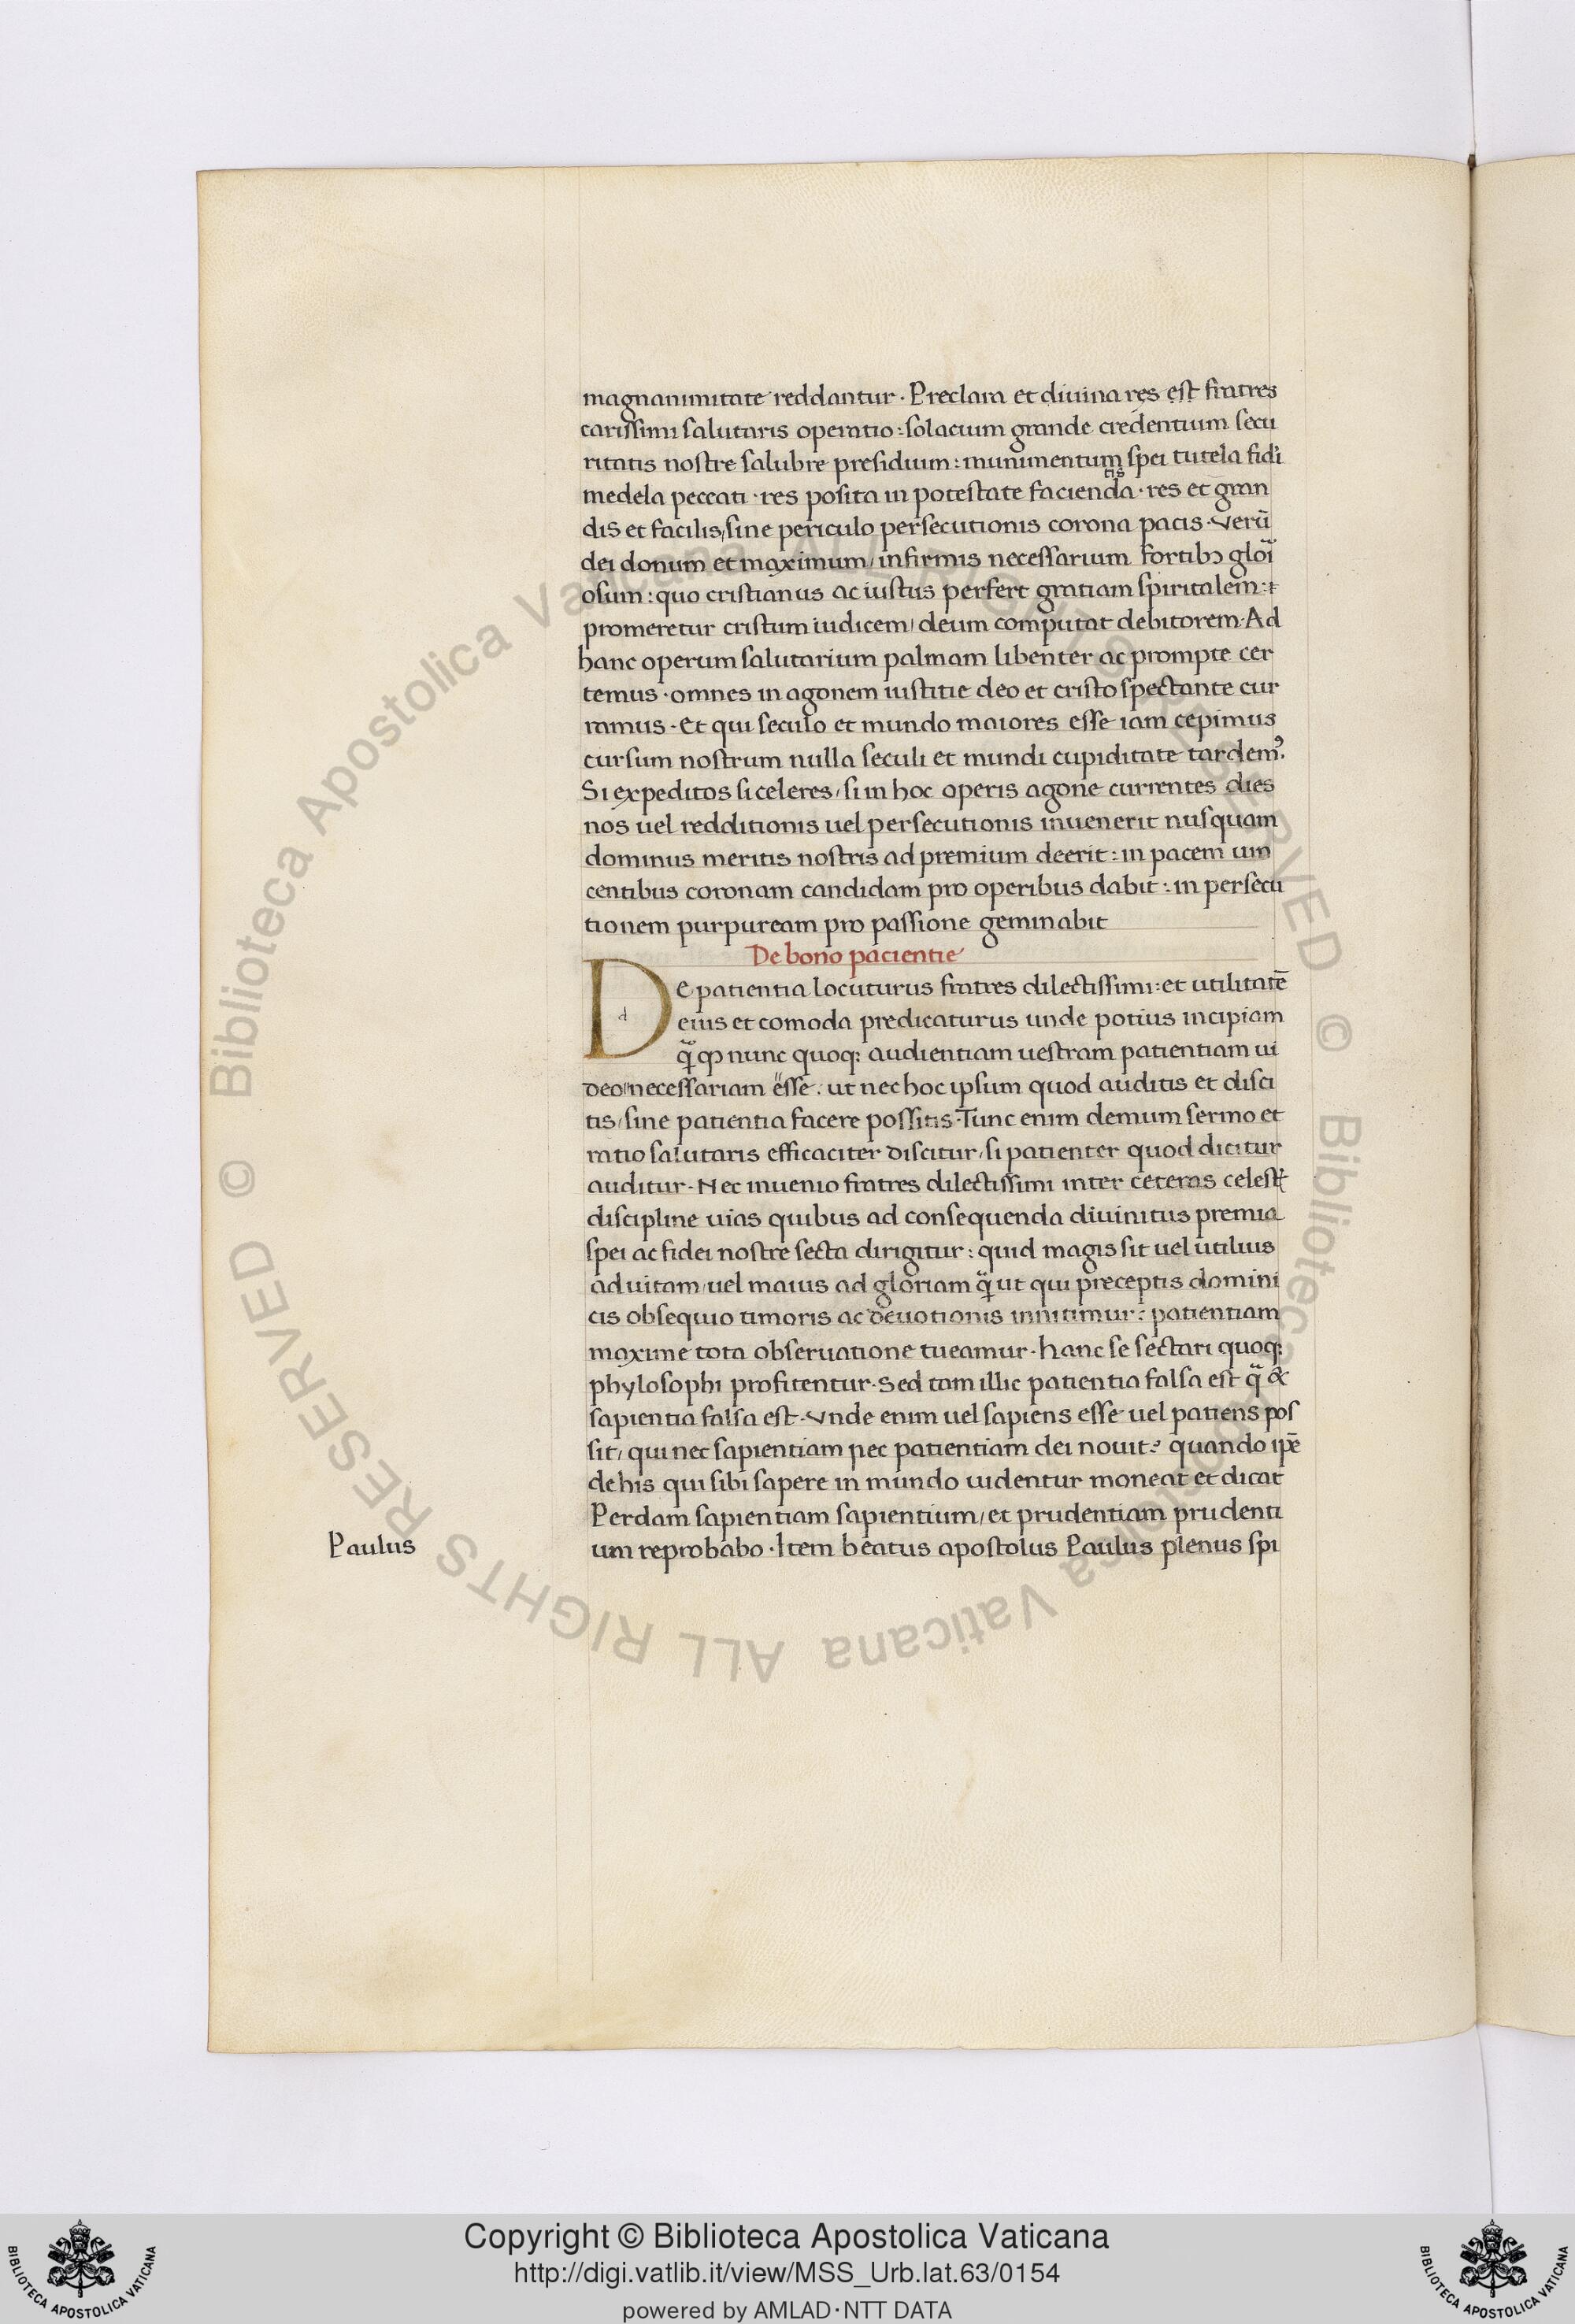 magnanimitate reddantur · Preclara et diuina res est fratres
carissimi salutaris operatio : solacium grande credentium secu
ritatis nostre salubre presidium : munimentum spei tutela fidi
medela peccati · res posita in potestate facien tis da · res et gran
dis et facilis, sine periculo persecutionis corona pacis · Verū
dei donum et maximum, infirmis necessarium fortibꝫ glori
osum : quo cristianus ac iustus perfert gratiam spiritalem : ⁊
promeretur cristum iudicem, deum computat debitorem · Ad
hanc operum salutarium palmam libenter ac prompte cer
temus · omnes in agonem iustitie deo et cristo spectante cur
ramus · Et qui seculo et mundo maiores esse iam cepimus
cursum nostrum nulla seculi et mundi cupiditate tardemꝰ.
Si expeditos si celeres, si in hoc operis agone currentes dies
nos uel redditionis uel persecutionis inuenerit nusquam
dominus meritis nostris ad premium deerit : in pacem uin
centibus coronam candidam pro operibus dabit : in persecu
tionem purpuream pro passione geminabit
De bono pacientie
De patientia locuturus fratres dilectissimi : et utilitatē
eius et comoda predicaturus unde potius incipiam
q̄ꝫ ꝙ nunc quoqꝫ audientiam uestram patientiam ui
deo necessariam esse. ut nec hoc ipsum quod auditis et disci
tis, sine patientia facere possitis · Tunc enim demum sermo et
ratio salutaris efficaciter discitur, si patienter quod dicitur
auditur · Nec inuenio fratres dilectissimi inter ceteras celest̄
discipline uias quibus ad consequenda diuinitus premia
spei ac fidei nostre secta dirigitur : quid magis sit uel utilius
ad uitam, uel maius ad gloriam q̄ ut qui preceptis domini
cis obsequio timoris ac deuotionis innitimur : patientiam
maxime tota obseruatione tueamur · hanc se sectari quoqꝫ
phylosophi profitentur · Sed tam illic patientia falsa est q̄ &
sapientia falsa est · Vnde enim uel sapiens esse uel patiens pos
sit, qui nec sapientiam nec patientiam dei nouit ? quando ip̄e
de his qui sibi sapere in mundo uidentur moneat et dicat
Perdam sapientiam sapientium, et prudentiam prudenti
um reprobabo · Item beatus apostolus Paulus plenus spi
Paulus
Copyright © Biblioteca Apostolica Vaticana
http://digi.vatlib.it/view/MSS_Urb.lat.63/0154
powered by AMLAD·NTT DATA
BIBLIOTECA APOSTOLICA VATICANA
BIBLIOTECA APOSTOLICA VATICANA
© Biblioteca Apostolica Vaticana ALL RIGHTS RESERVED
© Biblioteca Apostolica Vaticana ALL RIGHTS RESERVED